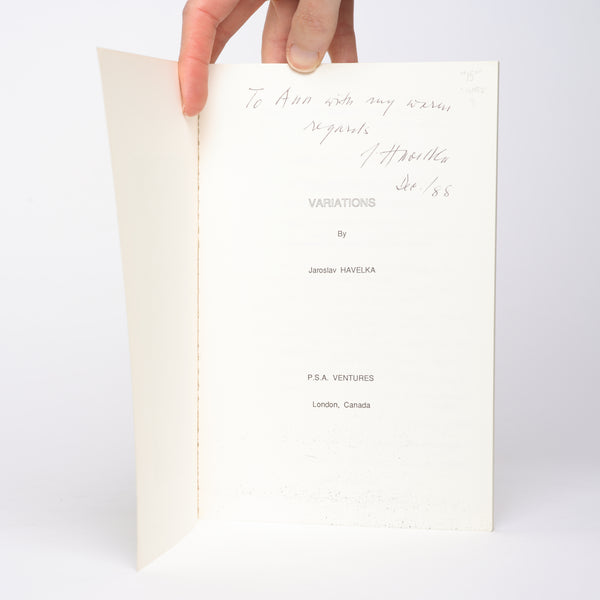 To Ann with my warm
regards
J Havelka
Dec./88
VARIATIONS
By
Jaroslav HAVELKA
P.S.A. VENTURES
London, Canada